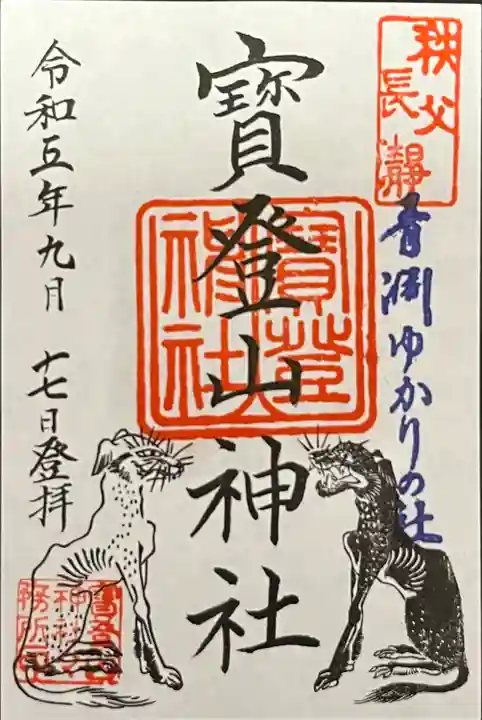 秩父
長瀞
青渕ゆかりの社
寶登山神社
寶登
神社
令和五年九月 十七日登拝
神社
務所